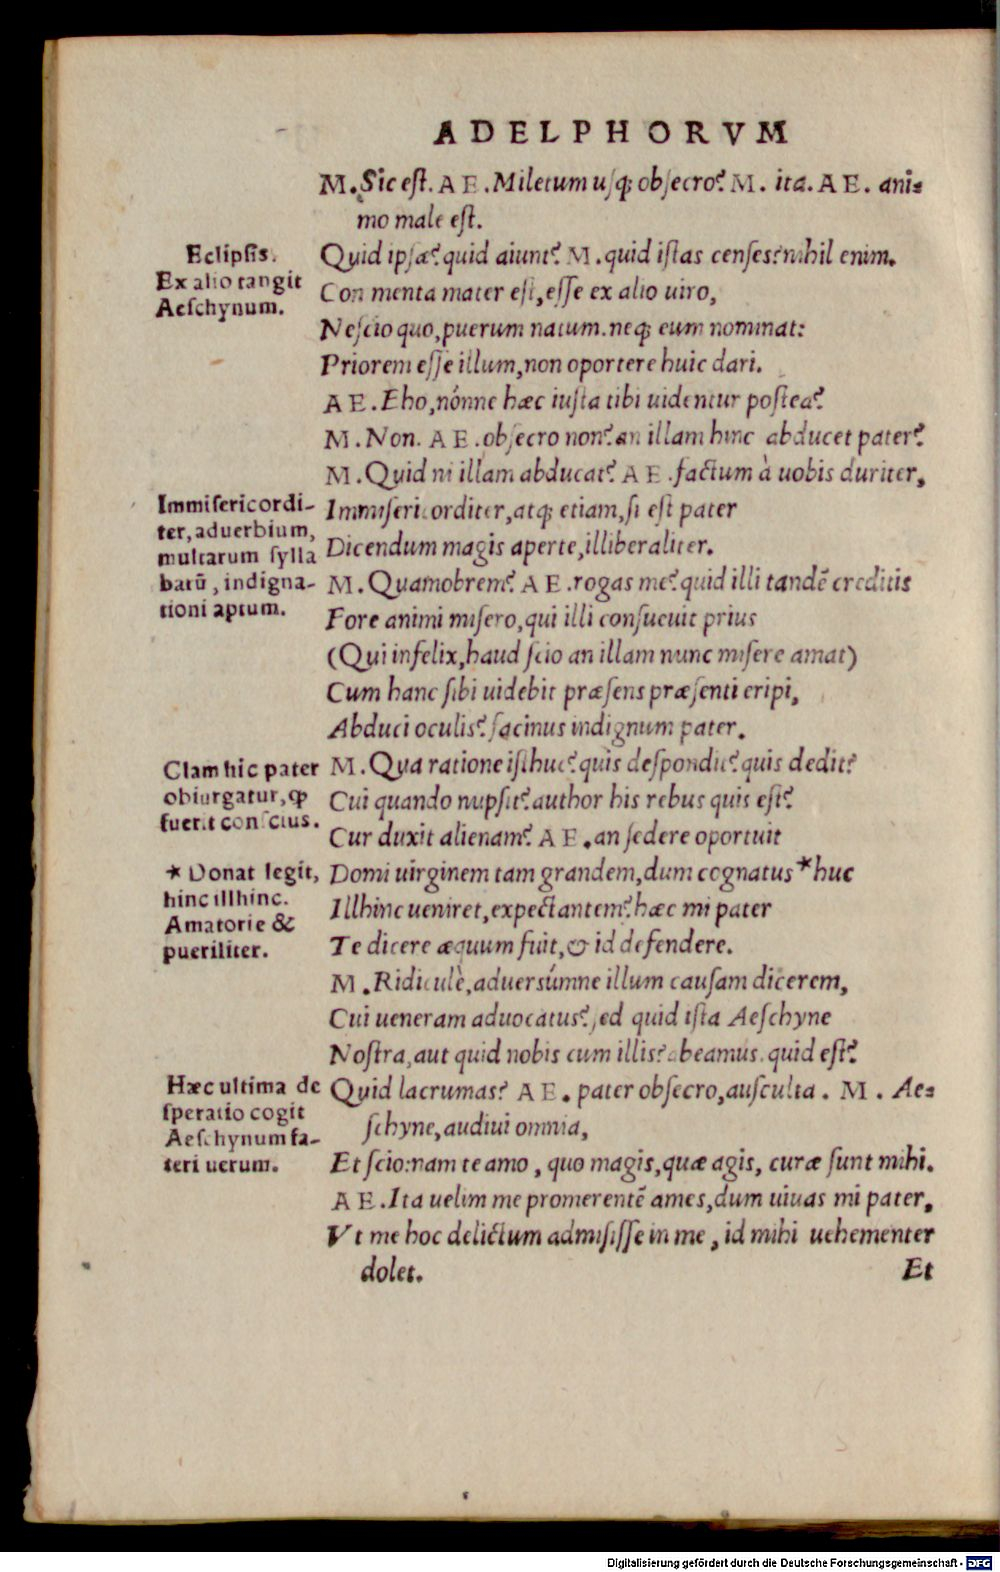 ADELPHORVM
M. Sic est. AE. Miletum usq; obsecro? M. ita. AE. ani=
mo male est.
Eclipsis.
Ex alio tangit
Aeschynum.
Quid ipsæ? quid aiunt? M. quid istas censes? nihil enim.
Con menta mater est, esse ex alio uiro,
Nescio quo, puerum natum. neq; eum nominat:
Priorem esse illum, non oportere huic dari.
AE. Eho, nónne hæc iusta tibi uidentur postea?
M. Non. AE. obsecro non? an illam hinc abducet pater?
M. Quid ni illam abducat? AE. factum à uobis duriter,
Immisericordi-
ter, aduerbium,
multarum sylla
barū, indigna-
tioni aptum.
Immisericorditer, atq; etiam, si est pater
Dicendum magis aperte, illiberaliter.
M. Quamobrem? AE. rogas me? quid illi tandē creditis
Fore animi misero, qui illi consueuit prius
(Qui infelix, haud scio an illam nunc misere amat)
Cum hanc sibi uidebit præsens præsenti eripi,
Abduci oculis? facinus indignum pater.
Clam hic pater
obiurgatur, ꝙ
fuerit conscius.
M. Qua ratione isthuc? quis despondit? quis dedit?
Cui quando nupsit? author his rebus quis est?
Cur duxit alienam? AE. an sedere oportuit
* Donat legit,
hinc illhinc.
Amatorie &
pueriliter.
Domi uirginem tam grandem, dum cognatus * huc
Illhinc ueniret, expectantem? hæc mi pater
Te dicere æquum fuit, & id defendere.
M. Ridiculè, aduersúmne illum causam dicerem,
Cui ueneram aduocatus? sed quid ista Aeschyne
Nostra, aut quid nobis cum illis? abeamus. quid est?
Hæc ultima de
speratio cogit
Aeschynum fa-
teri uerum.
Quid lacrumas? AE. pater obsecro, ausculta. M. Ae=
schyne, audiui omnia,
Et scio: nam te amo, quo magis, quæ agis, curæ sunt mihi.
AE. Ita uelim me promerentē ames, dum uiuas mi pater,
Vt me hoc delictum admisisse in me, id mihi uehementer
dolet.
Et
Digitalisierung gefördert durch die Deutsche Forschungsgemeinschaft - DFG